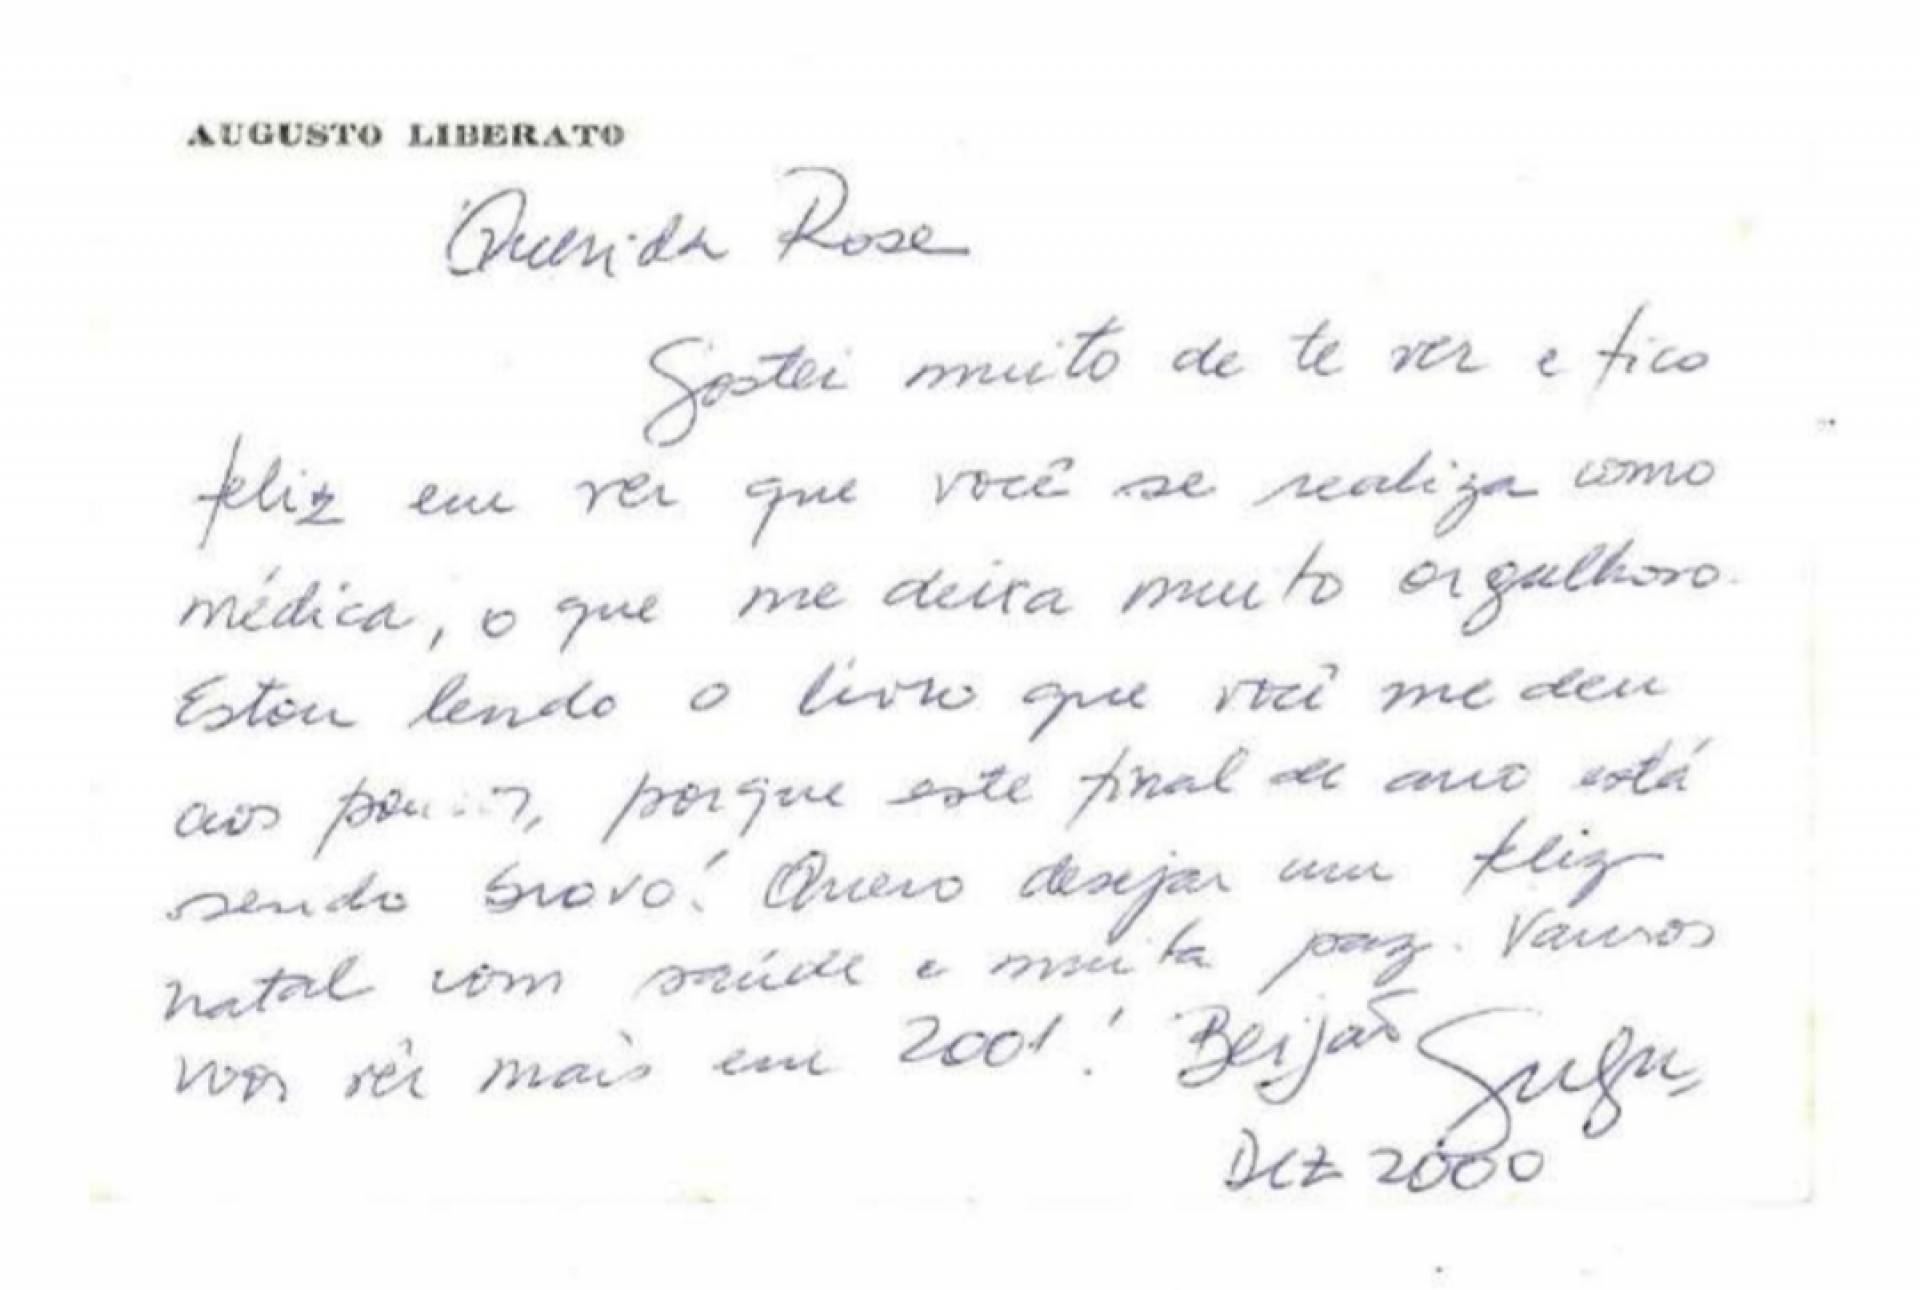 AUGUSTO LIBERATO
Querida Rose
Gostei muito de te ver e fico
feliz em ver que você se realiza como
médica, o que me deixa muito orgulhoso.
Estou lendo o livro que você me deu
aos, porque este final de ano está
sendo bravo! Quero desejar um feliz
natal com saúde e muita paz. Vamos
nos vêr mais em 2001! Beijão Gugu
DEZ 2000